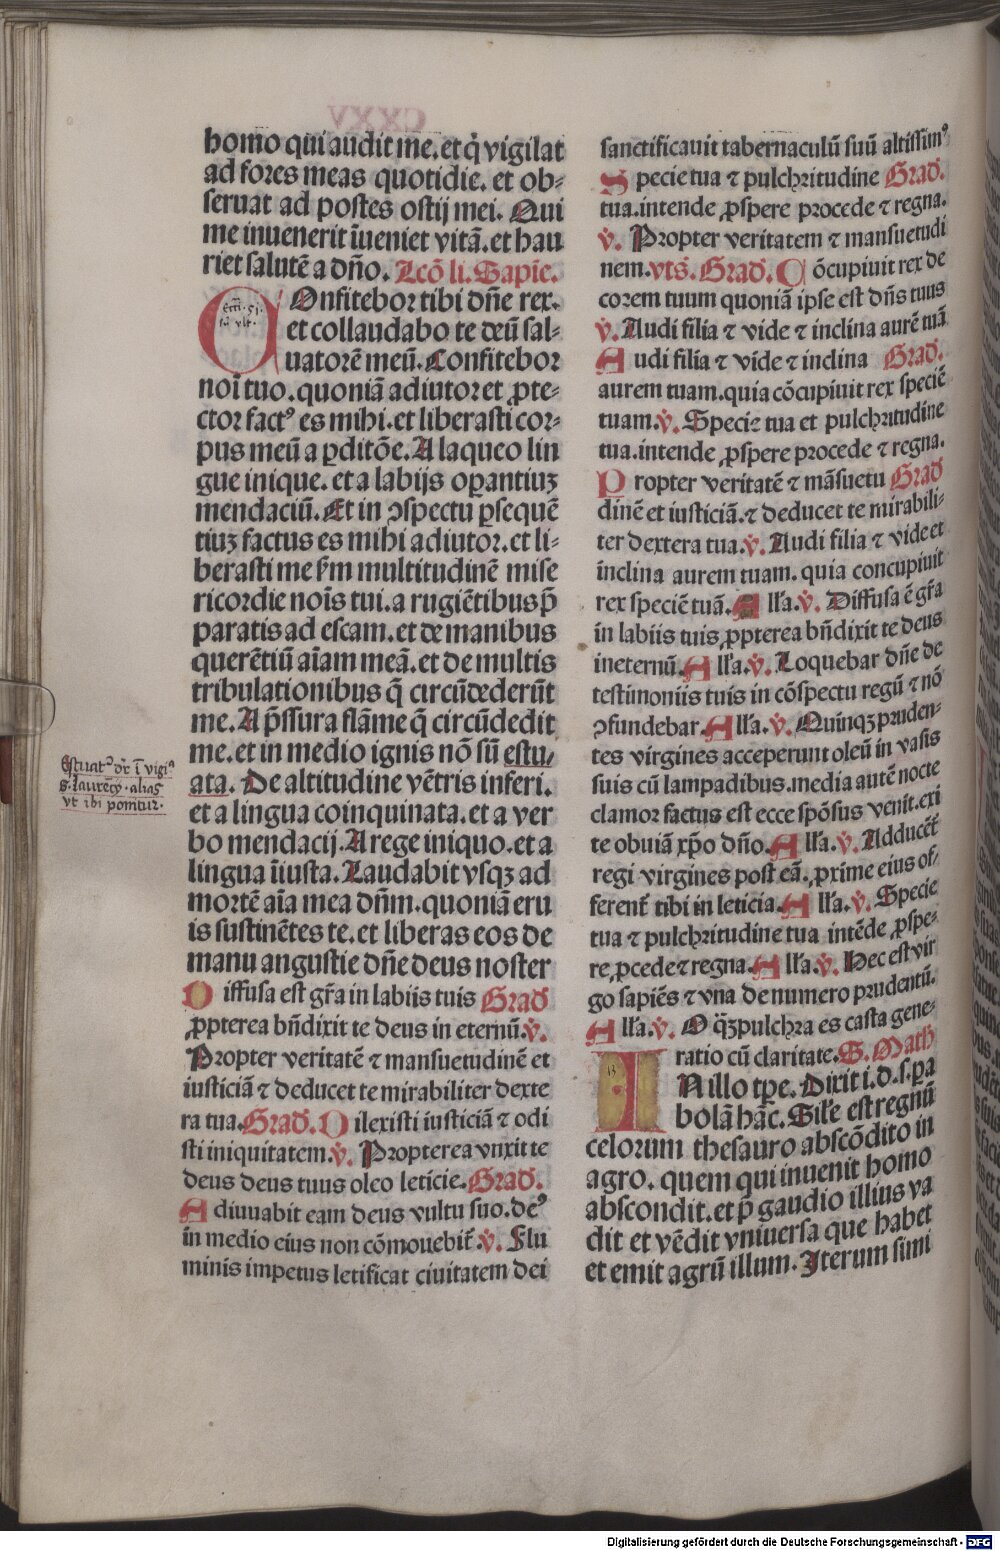 homo qui audit me. et q̇ vigilat
ad fores meas quotidie. et ob⸗
seruat ad postes ostij mei. Qui
me inuenerit īueniet vitā. et hau
riet salutē a dn̄o. Lcō li. Sapiē.
COnfitebor tibi dn̄e rex.
et collaudabo te deū sal⸗
uatorē meū. Confitebor
noī tuo. quoniā adiutor et ꝓte⸗
ctor factꝰ es mihi. et liberasti cor⸗
pus meū a ꝑditōe. A laqueo lin
gue inique. et a labijs oꝑantiuꝫ
mendaciū. Et in ↄspectu ꝑsequē
tiuꝫ factus es mihi adiutor. et li⸗
berasti me ẜm multitudinē mise
ricordie noīs tui. a rugiētibus p̄
paratis ad escam. et de manibus
querētiū aīam meā. et de multis
tribulationibus q̄ circūdederūt
me. A p̄ssura flāme q̄ circūdedit
me. et in medio ignis nō sū estu⸗
ata. De altitudine vētris inferi.
et a lingua coinquinata. et a ver
bo mendacij. A rege iniquo. et a
lingua īiusta. Laudabit vsqꝫ ad
mortē aīa mea dn̄m. quoniā eru
is sustinētes te. et liberas eos de
manu angustie dn̄e deus noster
Diffusa est gr̄a in labiis tuis Grad̄
ꝓpterea bn̄dixit te deus in eternū. v̇.
Propter veritatē ⁊ mansuetudinē et
iusticiā ⁊ deducet te mirabiliter dexte
ra tua. Grad̄. Dilexisti iusticiā ⁊ odi
sti iniquitatem. v̇. Propterea vnxit te
deus deus tuus oleo leticie. Grad̄.
Adiuuabit eam deus vultu suo. deꝰ
in medio eius non cōmouebit᷑. v̇. Flu
minis impetus letificat ciuitatem dei
Estuatꝰ
vt ibi
sanctificauit tabernaculū suū altissimꝰ
Specie tua ⁊ pulchritudine Grad̄.
tua. intende ꝓspere procede ⁊ regna.
v̇. Propter veritatem ⁊ mansuetudi
nem. vts̄. Grad̄. Cōcupiuit rex de
corem tuum quoniā ipse est dn̄s tuus
v̇. Audi filia ⁊ vide ⁊ inclina aurē tuā
Audi filia ⁊ vide ⁊ inclina Grad̄.
aurem tuam. quia cōcupiuit rex speciē
tuam. v̇. Specie tua et pulchritudine
tua. intende ꝓspere procede ⁊ regna.
Propter veritatē ⁊ māsuetu Grad̄
dinē et iusticiā. ⁊ deducet te mirabili⸗
ter dextera tua. v̇. Audi filia ⁊ vide et
inclina aurem tuam. quia concupiuit
rex speciē tuā. Alľa. v̇. Diffusa ē gr̄a
in labiis tuis ꝓpterea bn̄dixit te deus
ineternū. Alľa. v̇. Loquebar dn̄e de
testimoniis tuis in cōspectu regū ⁊ nō
ↄfundebar. Alľa. v̇. Quinqꝫ pruden⸗
tes virgines acceperunt oleū in vasis
suis cū lampadibus. media autē nocte
clamor factus est ecce spōsus venit. exi
te obuiā xp̄o dn̄o. Alľa. v̇. Adducēt᷑
regi virgines post eā. ꝓxime eius of⸗
ferent᷑ tibi in leticia. Alľa. v̇. Specie
tua ⁊ pulchritudine tua intēde ꝓspe⸗
re ꝓcede ⁊ regna. Alľa. v̇. Hec est vir
go sapiēs ⁊ vna de numero prudentū.
Alľa. v̇. O q̈ꝫ pulchra es casta gene⸗
ratio cū claritate. S. Math
IN illo tꝑe. Dixit i. d. s. ꝑa
bolā hāc. Siľe est regnū
celorum thesauro abscōdito in
agro. quem qui inuenit homo
abscondit. et p̄ gaudio illius va
dit et vēdit vniuersa que habet
et emit agrū illum. Iterum simi
Digitalisierung gefördert durch die Deutsche Forschungsgemeinschaft - DFG